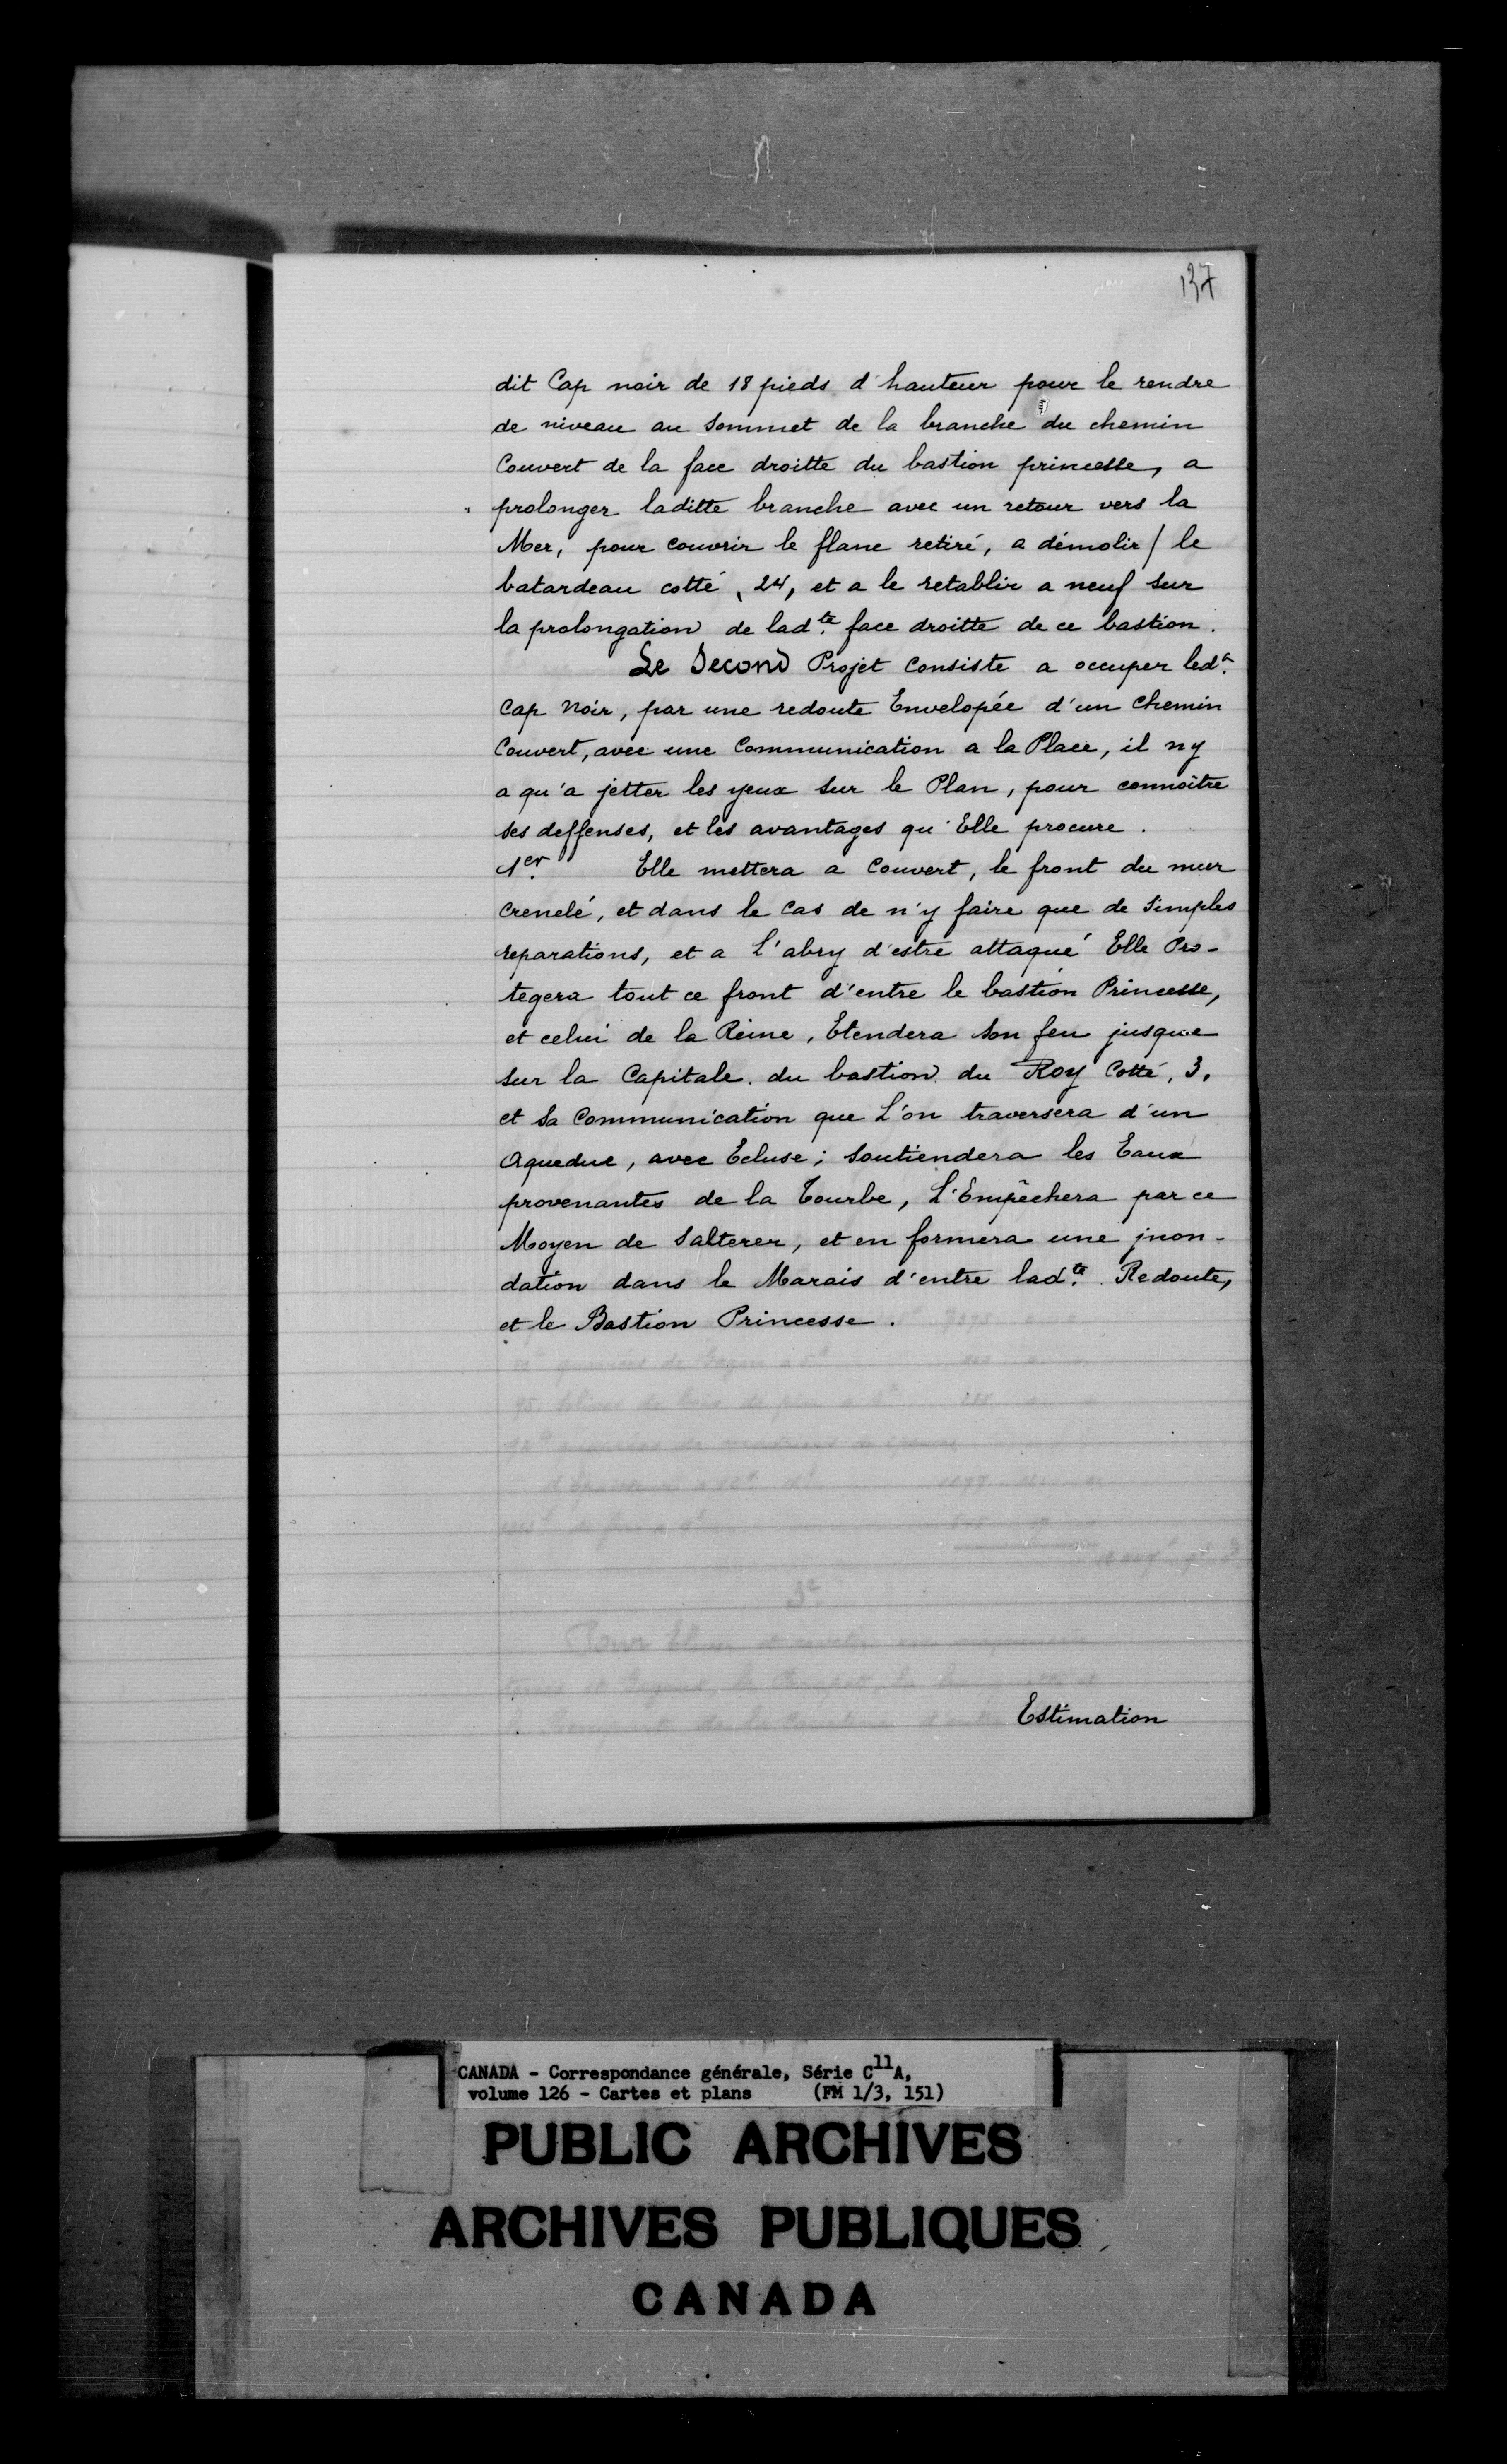 137
dit Cap noir de 18 pieds d'hauteur pour le rendre
de niveau au sommet de la branche du chemin
Couvert de la face droitte du bastion princesse, a
prolonger laditte branche avec un retour vers la
Mer, pour couvrir le flanc retiré, a démolir / le
batardeau cotté, 24, et a le retablir a neuf sur
la prolongation de ladte. face droitte de ce bastion.
Le Second Projet Consiste a occuper ledt.
Cap Noir, par une redoute Envelopée d'un Chemin
Couvert, avec une Communication a la Place, il ny
a qu'a jetter les yeux sur le Plan, pour connoître
ses deffenses, et les avantages qu'Elle procure.
1er. Elle mettera a Couvert, le front du mur
Crenelé, et dans le Cas de n'y faire que de Simples
reparations, et a l'abry d'estre attaqué Elle Pro-
tegera tout ce front d'entre le bastion Princesse,
et celui de la Reine, Etendera son feu jusque
sur la Capitale. du bastion du Roy Cotté, 3,
et sa Communication que L'on traversera d'un
Aqueduc, avec Ecluse; Soutiendera les Eaux
provenantes de la Tourbe, L'Empêchera par ce
Moyen de Salterer, et en formera une jnon-
dation dans le Marais d'entre ladte. Redoute,
et le Bastion Princesse.
Estimation
CANADA - Correspondance générale, Série C11A,
volume 126 - Cartes et plans (FM 1/3, 151)
PUBLIC ARCHIVES
ARCHIVES PUBLIQUES
CANADA